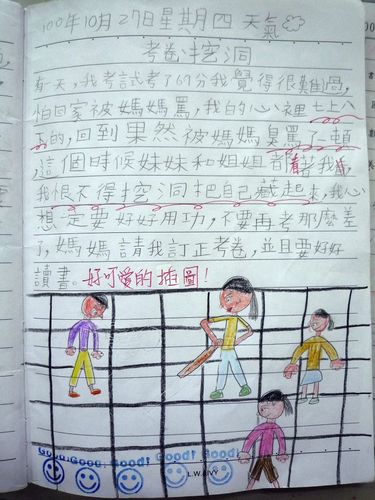 100年10月27日星期四 天氣
考卷挖洞
有一天,我考試考了67分我覺得很難過,
怕回家被媽媽罵,我的心裡七上八
下的,回到果然被媽媽臭罵了一頓
,這個時候妹妹和姐姐都看著我,
我恨不得挖洞把自己藏起來,我心
想一定要好好用功,不要再考那麼差
了,媽媽請我訂正考卷,並且要好好
讀書。好可愛的插圖!
Good! Good! Good! Good! Good!
L.W.AIVY